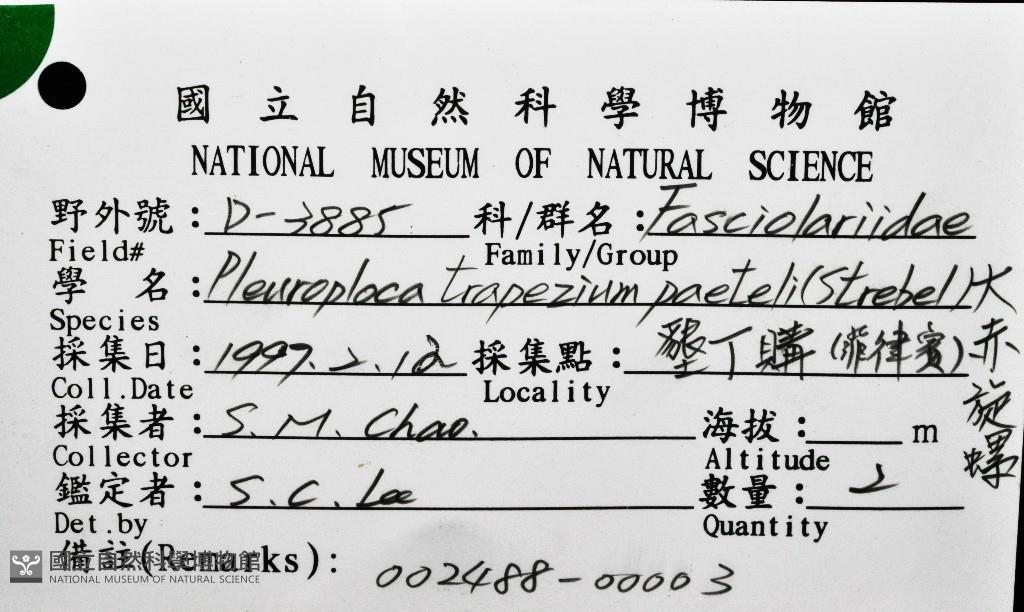 國立自然科學博物館
NATIONAL MUSEUM OF NATURAL SCIENCE
野外號：D-3885 科/群名：Fasciolariidae
Field# Family/Group
學 名：Pleuroploca trapezium paeteli (Strebel) 大赤旋螺
Species
採集日：1997.2.12 採集點：墾丁購(菲律賓)
Coll.Date Locality
採集者：S. M. Chao. 海拔：m
Collector Altitude
鑑定者：S. C. Lee 數量：2
Det.by Quantity
備註(Remarks): 002488-00003
國立自然科學博物館
NATIONAL MUSEUM OF NATURAL SCIENCE